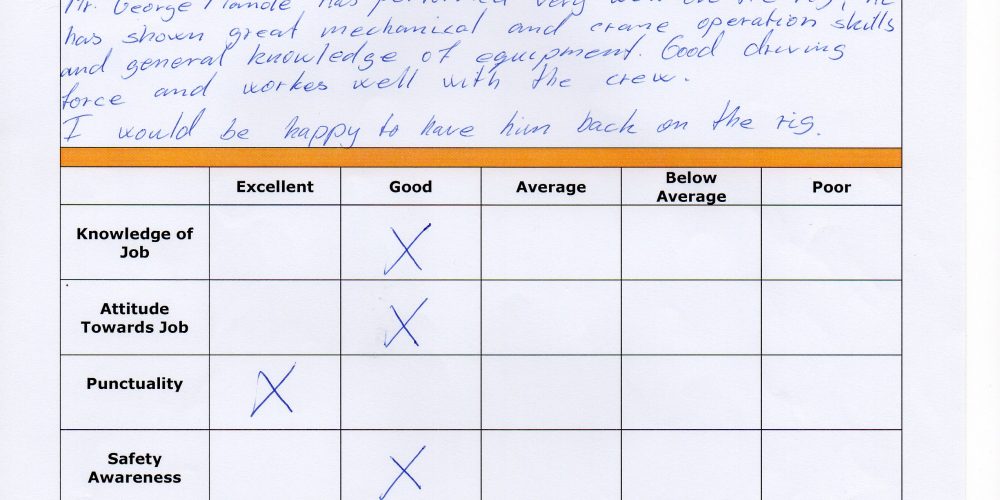 Mr. George has performed very well on the rig, he
has shown great mechanical and crane operation skills
and general knowledge of equipment. Good driving
force and workes well with the crew.
I would be happy to have him back on the rig.
Excellent Good Average Below Average Poor
Knowledge of Job X
Attitude Towards Job X
Punctuality X
Safety Awareness X